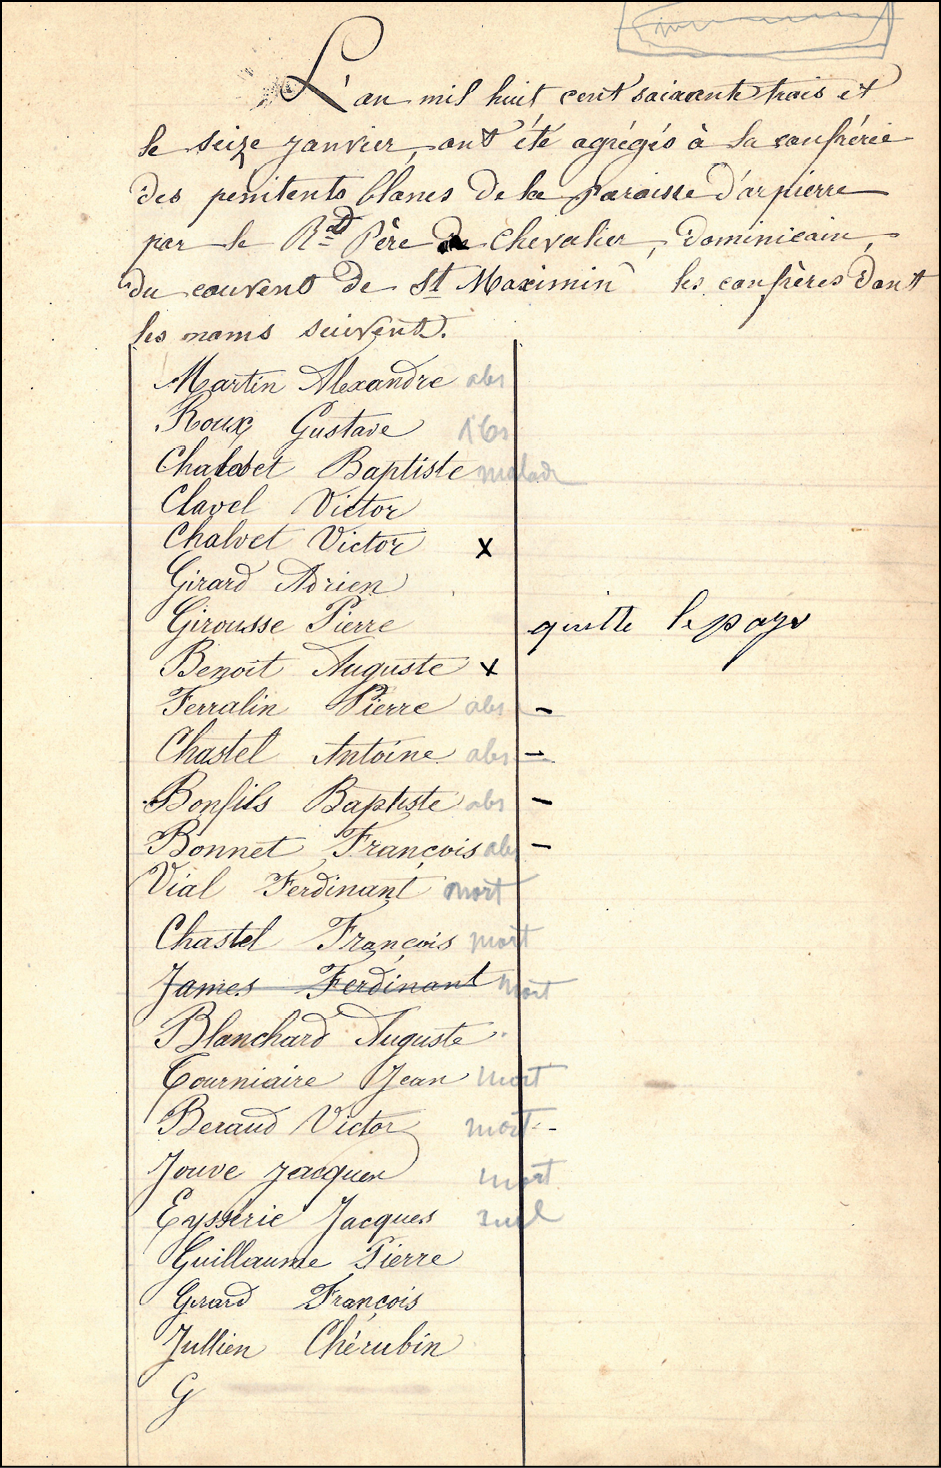 L'an mil huit cent soixante trois et
le seize janvier, ont été agrégés à la confrérie
des penitents blancs de la paroisse d'arpierre
par le Rd Père Chevalier, Dominicain,
du couvent de St Maximin les confrères dont
les noms suivent.
Martin Alexandre abs
Roux Gustave
Chalvet Baptiste malade
Clavel Victor
Chalvet Victor x
Girard Adrien
Girousse Pierre quitte le pays
Benoit Auguste x
Ferralin Pierre abs -
Chastel Antoine abs -
Bonfils Baptiste abs -
Bonnet François abs -
Vial Ferdinant mort
Chastel François mort
James Ferdinant mort
Blanchard Auguste
Tourniaire Jean mort
Beraud Victor mort --
Jouve Jacques mort
Eysséric Jacques
Guillaume Pierre
Girard François
Jullien Chérubin
G